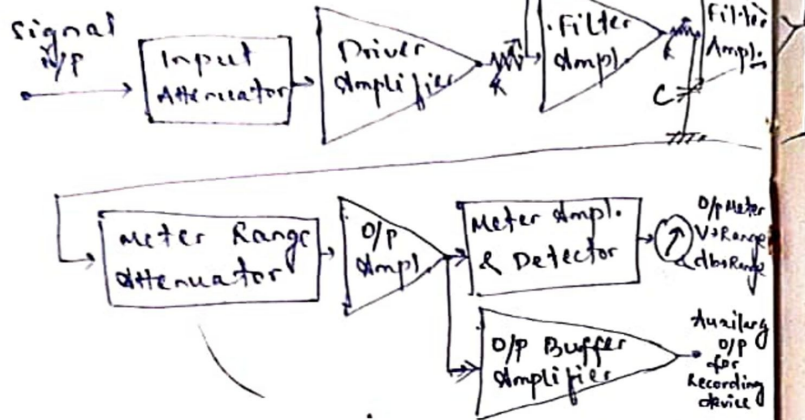 Signal
i/p
Input
Attenuator
Driver
Amplifier
R
Filter
Ampl.
R
C
Filter
Ampl.
Meter Range
Attenuator
O/p
Ampl
Meter Ampl.
& Detector
O/p Meter
V→Range
db→Range
O/p Buffer
Amplifier
Auxilary
O/p
for
Recording
device